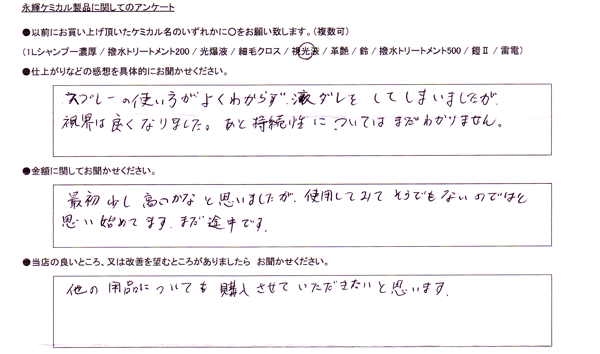 永輝ケミカル製品に関してのアンケート
●以前にお買い上げ頂いたケミカル名のいずれかに〇をお願い致します。（複数可）
（1Lシャンプー濃厚 / 撥水トリートメント200 / 光爆液 / 細毛クロス / 視光液 / 革艶 / 鈴 / 撥水トリートメント500 / 鎧Ⅱ / 雷電）
●仕上がりなどの感想を具体的にお聞かせください。
スプレーの使い方がよくわからず、液ダレをしてしまいましたが、
視界は良くなりました。あと持続性についてはまだわかりません。
●金額に関してお聞かせください。
最初少し高いのかなと思いましたが、使用してみてそうでもないのではと
思い始めてます。まだ途中です。
●当店の良いところ、又は改善を望むところがありましたら お聞かせください。
他の用品についても購入させていただきたいと思います。